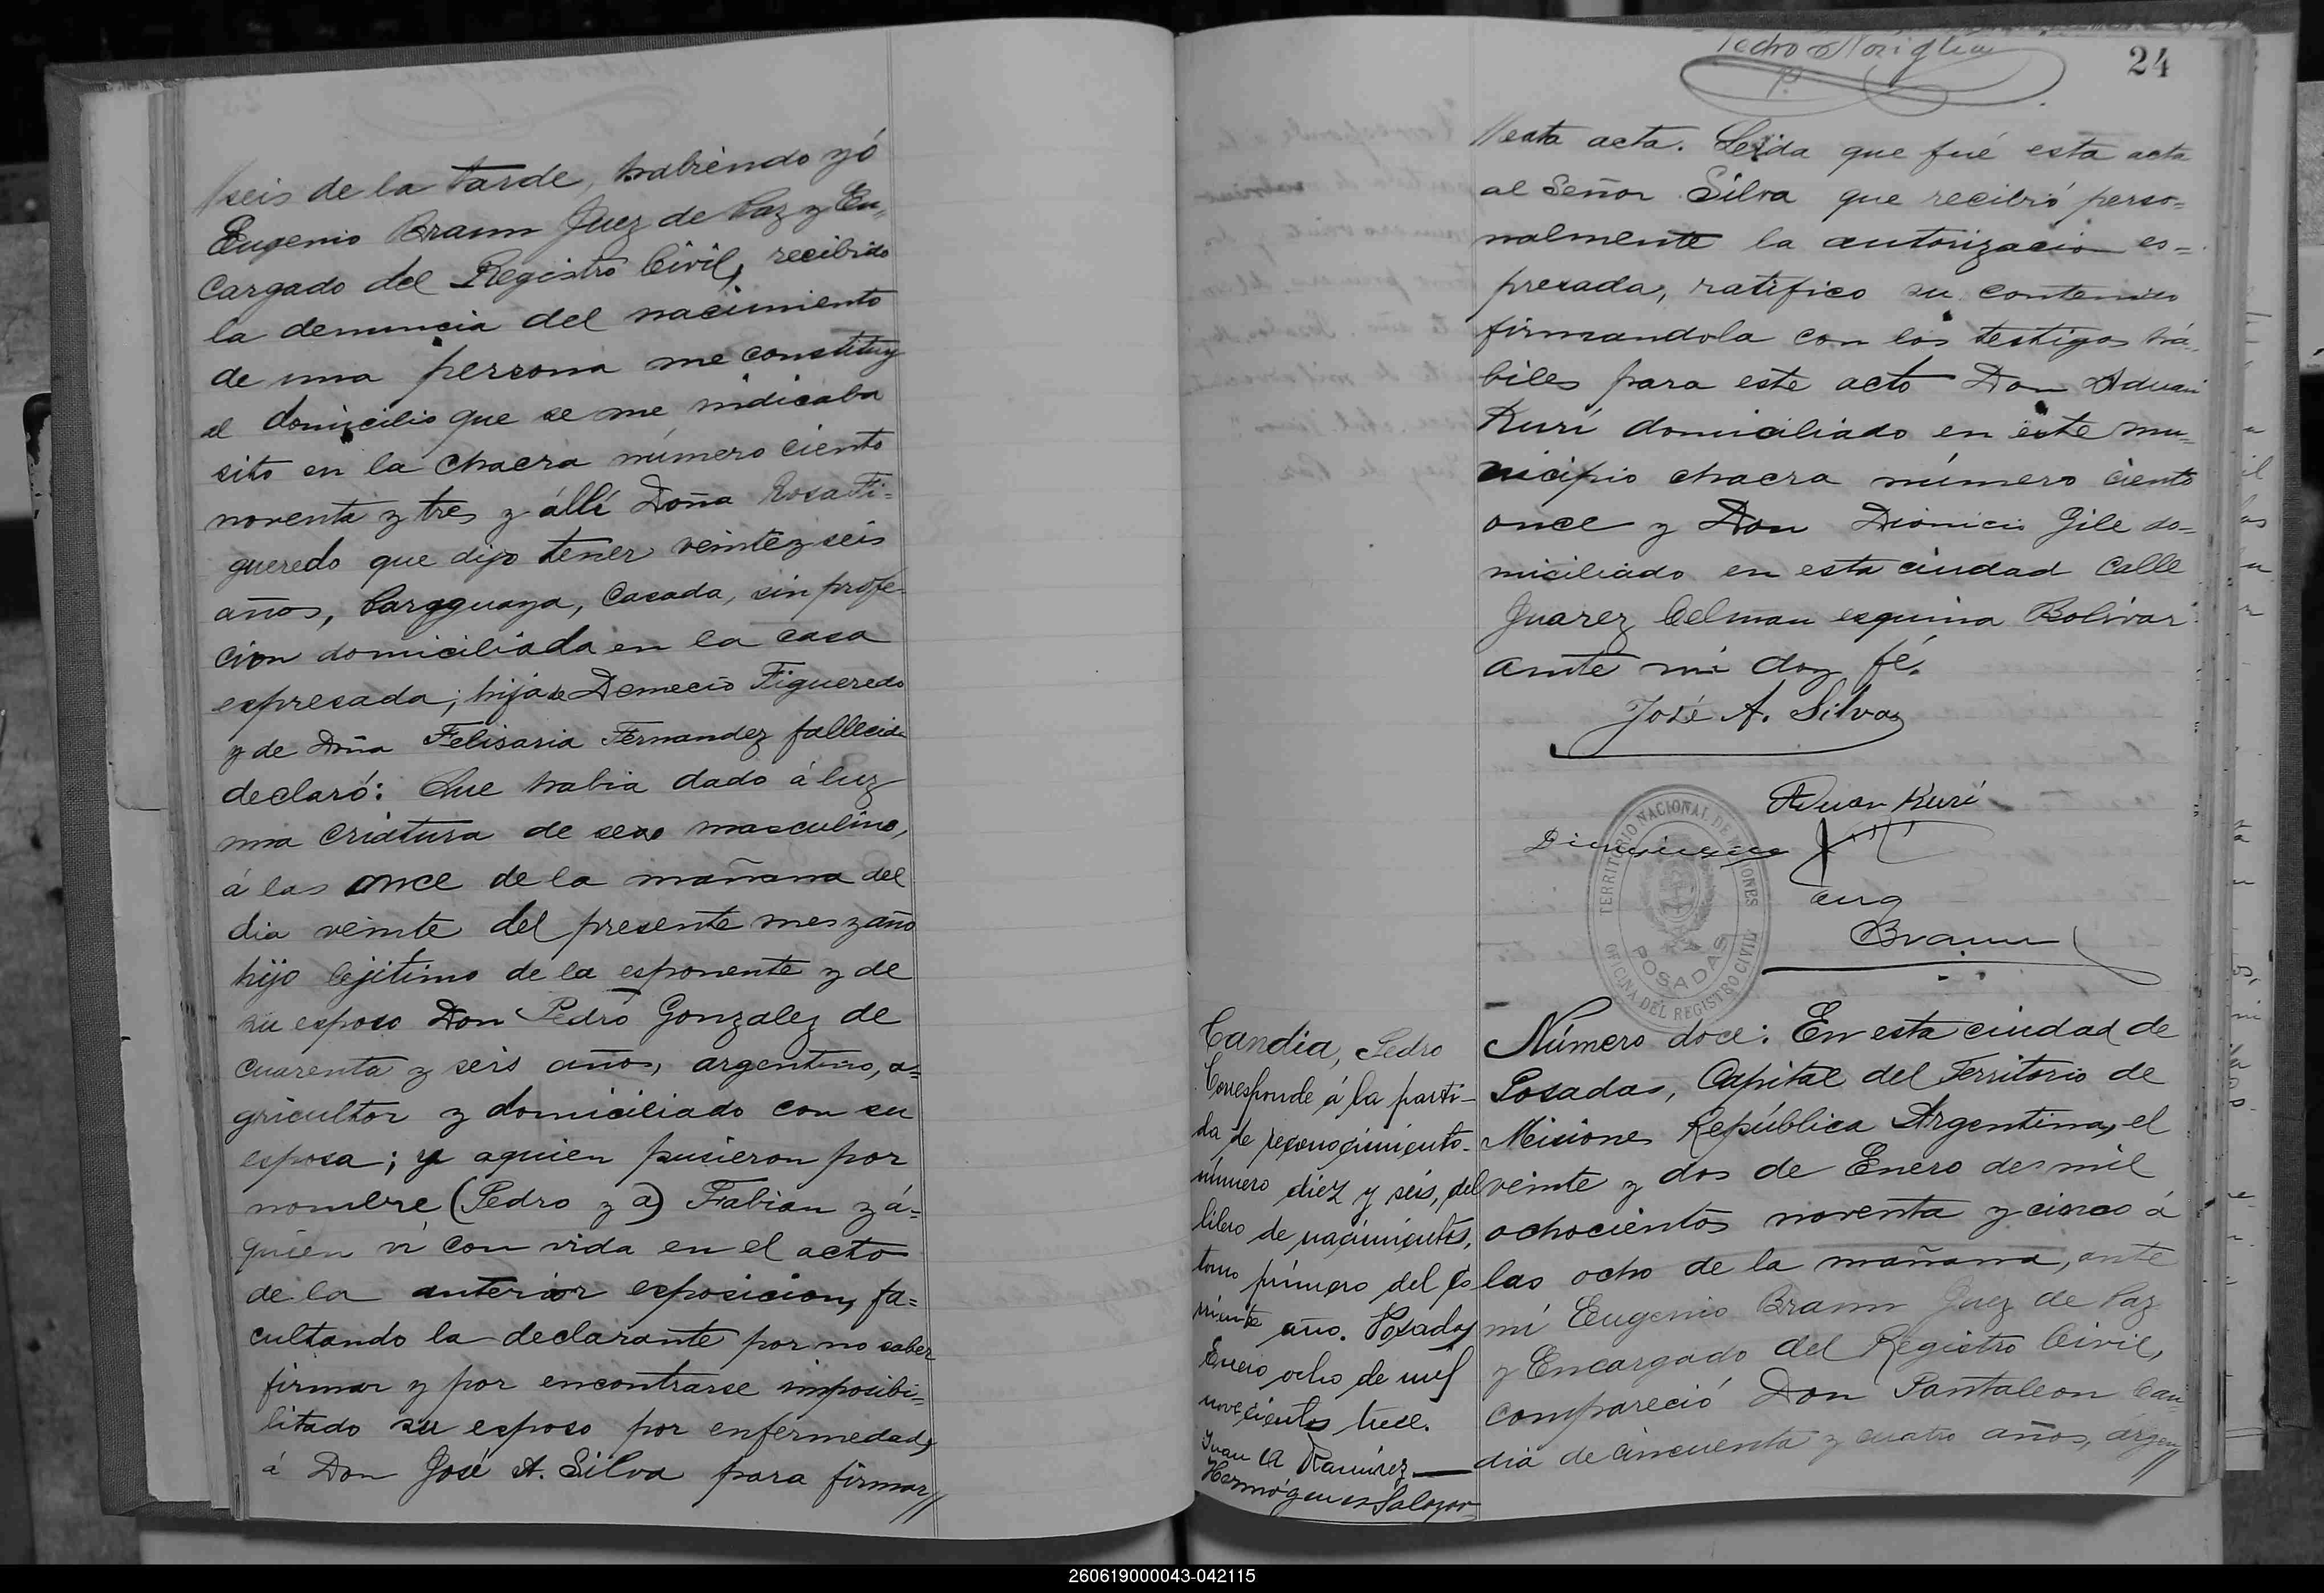 //seis de la tarde, habiendo yó
Eugenio Braun Juez de Paz y En,,
Cargado del Registro Civil, recibido
la denuncia del nacimiento
de una persona me constituy
al domicilio que se me indicaba
sito en la chacra número ciento
noventa y tres y állí Doña Rosa Fi=
gueredo que dijo tener veintez seis
años, Paragguaya, Casada, sin profe-
cion domiciliada en la casa
espresada; hija de Demecio Figueredo
y de Dña Felisaria Fernandez fallecida
declaró: Que habia dado á luz
una criatura de sexo masculino,
á las once de la mañana del
dia veinte del presente mes y año
hijo lejitimo de la esponente y de
su esposo Don Pedro Gonzalez de
cuarenta y seis años, argentino, a=
gricultor y domiciliado con su
esposa; y aquien pusieron por
nombre (Pedro y a) Fabian y á=
quien ví con vida en el acto
de la anterior esposicion, fa=
cultando la declarante por no saber
firmar y por encontrarse imposibi=
litado su esposo por enfermedad,
á Don José A. Silva para firmar//
24
//esta acta. Leida que fué esta acta
al Señor Silva que recibió perso=
nalmente la autorizacion es=
presada, ratifico su contenido
firmandola con los testigos há,,
biles para este acto Don Aduan
Kurí domiciliado en este mu,,
nicipio chacra número ciento
once y Don Dionicio Gile do=
miciliado en esta ciudad Calle
Juarez Celman esquina Bolivar
ante mi doy fé.
José A. Silva
Aduan Kuri
Eug
Braun
TERRITORIO NACIONAL DE MISIONES
POSADAS
OFICINA DEL REGISTRO CIVIL
Candia, Pedro
Corresponde á la parti-
da de reconocimiento
número diez y seis, del
libro de nacimientos,
tomo primero del co
rriente año. Posadas
Enero ocho de mil
novecientos trece.
Juan A Ramírez
Hermógenes Salazar
Número doce: En esta ciudad de
Posadas, Capital del Territorio de
Misiones República Argentina, el
veinte y dos de Enero de mil
ochocientos noventa y cinco á
las ocho de la mañana, ante
mí Eugenio Braun Juez de Paz
y Encargado del Registro Civil,
compareció Don Pantaleon Can-
dia de cincuenta y cuatro años, argen//
260619000043-042115